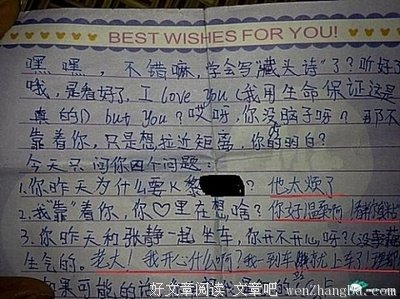 BEST WISHES FOR YOU!
嘿嘿，不错嘛，学会写"藏头诗"了？听好了
哦，是看好了，I love You（我用生命保证这是
真的D but You？哎呀，你没脑子呀？那不
靠着你，只是想拉近距离，你的明白？
今天只问你四个问题：
1.你昨天为什么要K ？他太烦了
2.我"靠"着你，你♡里在想啥？你好温柔
3.你昨天和张静一起坐车，你开不开心呀？（没事
生气的。老大！我开心什么啊！我一到车 就上车了！
如果可能的
好文章阅读-文章吧 www.wenzhangba.com